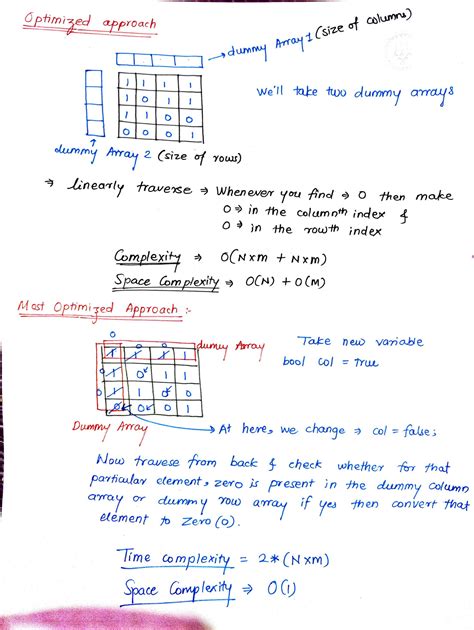 Optimized approach
dummy Array 1 (size of columns)
we'll take two dummy arrays
1 1 1 1
1 0 1 1
1 1 0 1
0 0 0 1
dummy Array 2 (size of rows)
⇒ linearly traverse ⇒ Whenever you find ⇒ 0 then make
0 ⇒ in the columnth index &
0 ⇒ in the rowth index
Complexity ⇒ O(N×m + N×m)
Space Complexity ⇒ O(N) + O(M)
Most Optimized Approach :-
0
dummy Array
Take new variable
bool col = true
1 1 1 1
0 1 0 1 1
0 1 1 0
0 0 0 1
Dummy Array
At here, we change ⇒ col = false;
Now travese from back & check whether for that
particular element, zero is present in the dummy column
array or dummy row array if yes then convert that
element to Zero (0).
Time complexity = 2*(N×m)
Space Complexity ⇒ O(1)